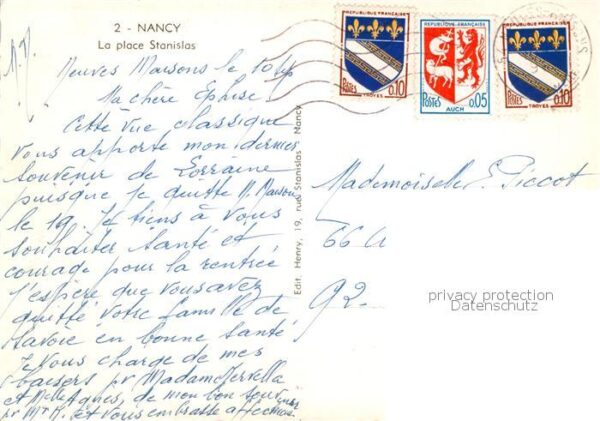 2 - NANCY
La place Stanislas
RÉPUBLIQUE FRANÇAISE
POSTES 0,10
TROYES
RÉPUBLIQUE FRANÇAISE
POSTES 0,05
AUCH
RÉPUBLIQUE FRANÇAISE
POSTES 0,10
TROYES
Neuves Maisons le
Ma chère
Cette vue classique
Vous apporte mon dernier
souvenir de Lorraine
puisque je quitte N. Maisons
le 19. Je tiens à vous
souhaiter santé et
courage pour la rentrée
J'espère que vous avez
quitté votre famille de
Savoie en bonne santé
Je vous charge de mes
baisers pr Madame
et Melle Agnès, de mon bon souvenir
pr Mr et vous embrasse
Edit. Henry, 19, rue Stanislas - Nancy
Mademoiselle E. Piccot
66
92
privacy protection
Datenschutz